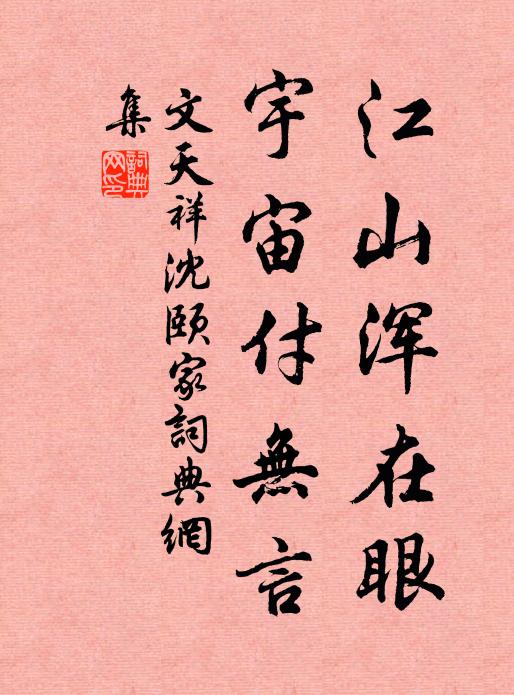 江山浑在眼
宇宙付無言
文天祥沈頤家詞典網
集
詞典网印